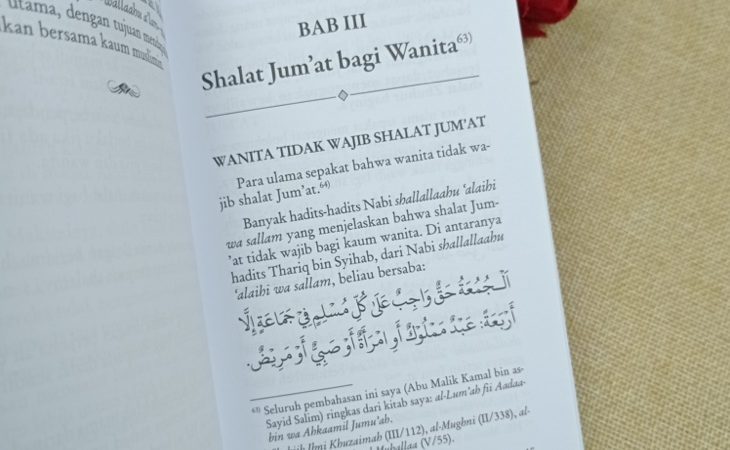 utama, dengan tujuan
kan bersama kaum muslimin
BAB III
Shalat Jum’at bagi Wanita⁶³⁾
WANITA TIDAK WAJIB SHALAT JUM’AT
Para ulama sepakat bahwa wanita tidak wa-
jib shalat Jum’at.⁶⁴⁾
Banyak hadits-hadits Nabi shallallaahu ‘alaihi
wa sallam yang menjelaskan bahwa shalat Jum-
’at tidak wajib bagi kaum wanita. Di antaranya
hadits Thariq bin Syihab, dari Nabi shallallaahu
‘alaihi wa sallam, beliau bersaba:
اَلْجُمُعَةُ حَقٌّ وَاجِبٌ عَلَى كُلِّ مُسْلِمٍ فِيْ جَمَاعَةٍ إِلَّا
أَرْبَعَةً: عَبْدٌ مَمْلُوْكٌ أَوِ امْرَأَةٌ أَوْ صَبِيٌّ أَوْ مَرِيْضٌ.
⁶³⁾ Seluruh pembahasan ini saya (Abu Malik Kamal bin as-
Sayid Salim) ringkas dari kitab saya: al-Lum’ah fii Aadaa-
bin wa Ahkaamil Jumu’ah.
Ibnu Khuzaimah (III/112), al-Mughni (II/338), al-
Muhallaa (V/55).